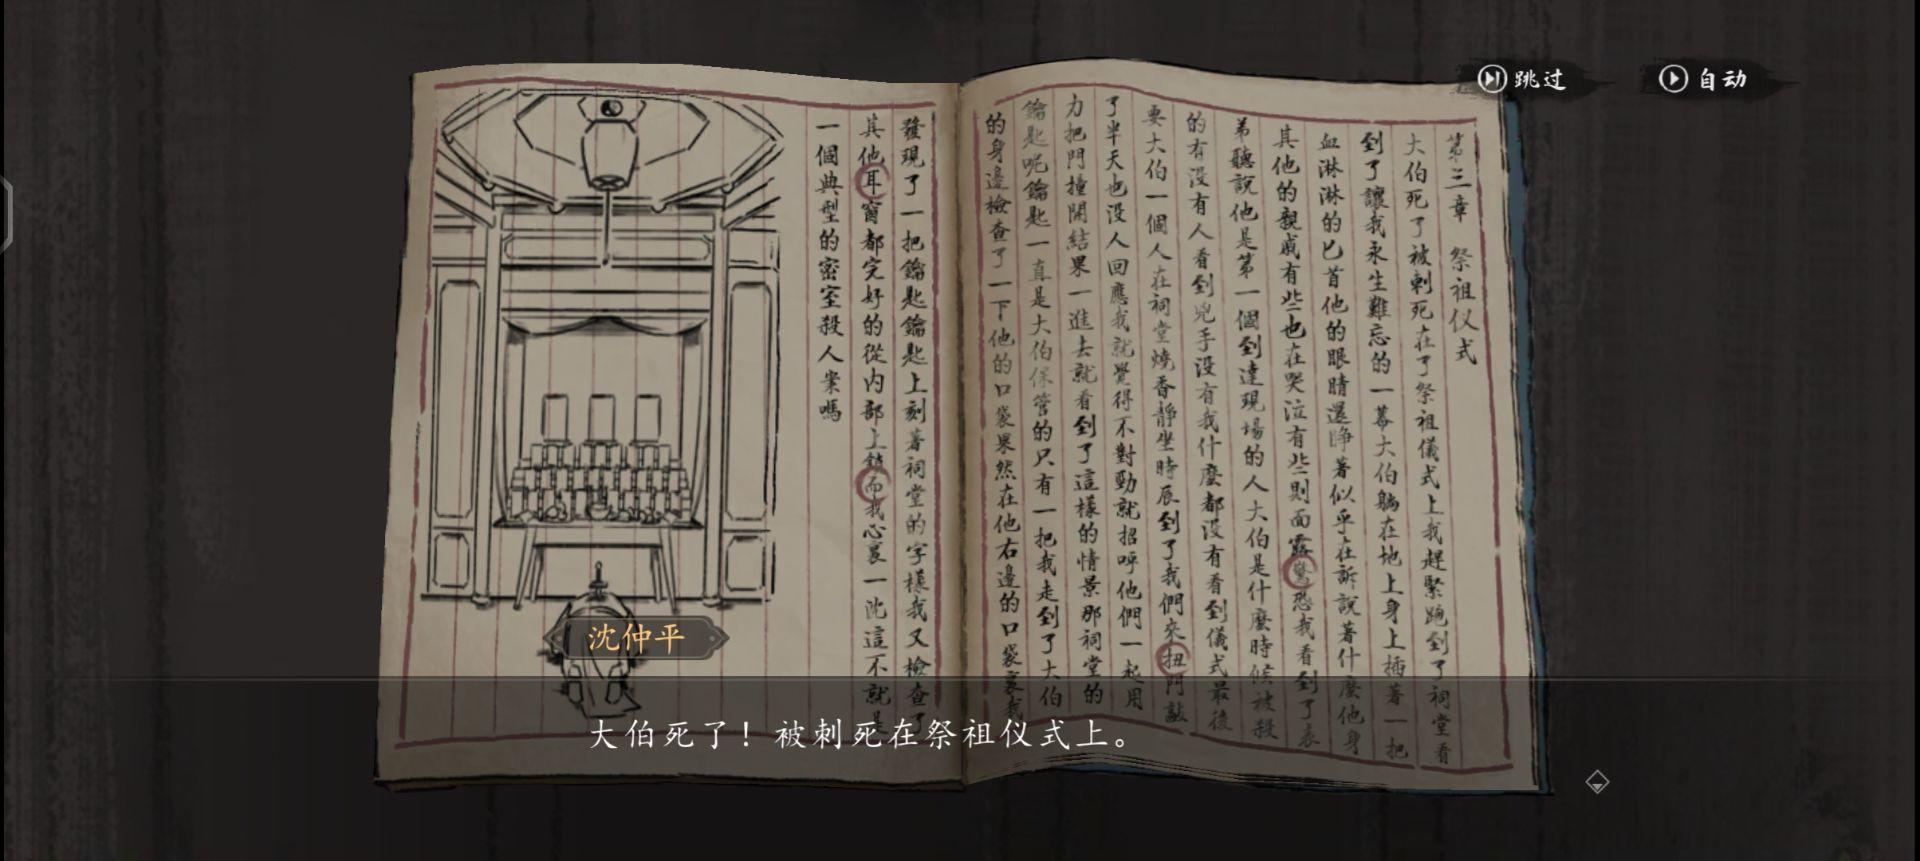 跳过
自动
第三章　祭祖仪式
大伯死了被刺死在了祭祖儀式上我趕緊跑到了祠堂看
到了讓我永生難忘的一幕大伯躺在地上身上插著一把
血淋淋的匕首他的眼睛還睜著似乎在訴說著什麼他身
其他的親戚有些也在哭泣有些則面露驚恐我看到了表
弟聽說他是第一個到達現場的人大伯是什麼時候被殺
的有没有人看到兇手没有我什麼都没有看到儀式最後
要大伯一個人在祠堂燒香靜坐時辰到了我們來扭門敲
了半天也没人回應我就覺得不對勁就招呼他們一起用
力把門撞開結果一進去就看到了這樣的情景那祠堂的
鑰匙呢鑰匙一直是大伯保管的只有一把我走到了大伯
的身邊檢查了一下他的口袋果然在他右邊的口袋裏我
發現了一把鑰匙鑰匙上刻著祠堂的字樣我又檢查了
其他耳窗都完好的從内部上鎖而我心裏一沈這不就是
一個典型的密室殺人案嗎
沈仲平
大伯死了！被刺死在祭祖仪式上。